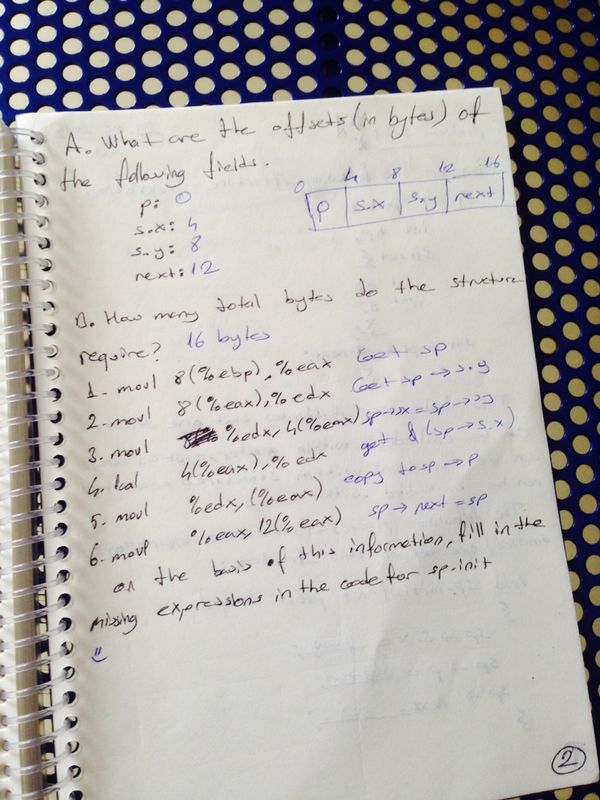 A. What are the offsets (in bytes) of
the following fields.
p: 0
s.x: 4
s.y: 8
next: 12
0 4 8 12 16
p s.x s.y next
B. How many total bytes do the structure
require? 16 bytes
1. movl 8(%ebp), %eax Get sp
2. movl 8(%eax), %edx Get sp → s.y
3. movl %edx, 4(%eax) sp→x = sp→y
4. leal 4(%eax), %edx get & (sp→s.x)
5. movl %edx, (%eax) copy to sp→p
6. movl %eax, 12(%eax) sp → next = sp
on the basis of this information, fill in the
missing expressions in the code for sp-init
2